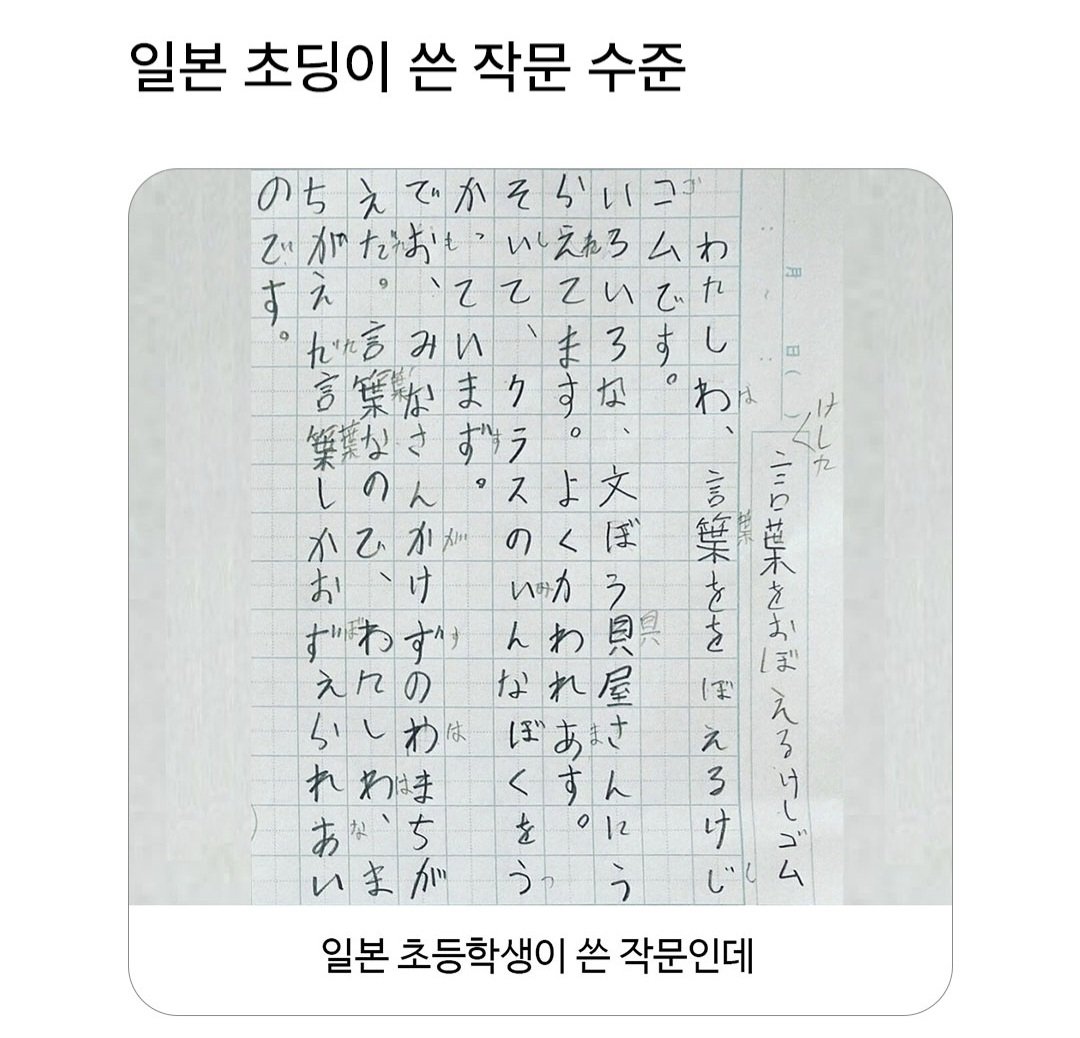 일본 초딩이 쓴 작문 수준
月 日( )
けした
言葉をおぼえるけしゴム
わたしわ、言葉ををぼえるけじ
は 葉 し
コムです。
ゴ
いろいろな、文ぼう貝屋さんにう
具
らえてます。よくかわれあす。
れ ま
そいて、クラスのいんなぼくをう
し み つ
かっていまず。
す
でお、みなさんかけずのわまちが
も が す は
えだ。言葉なのひ、わたしわ、ま
た 葉 は
ちがえだ言葉しかおずえられあい
た 葉 ぼ な
のです。
일본 초등학생이 쓴 작문인데